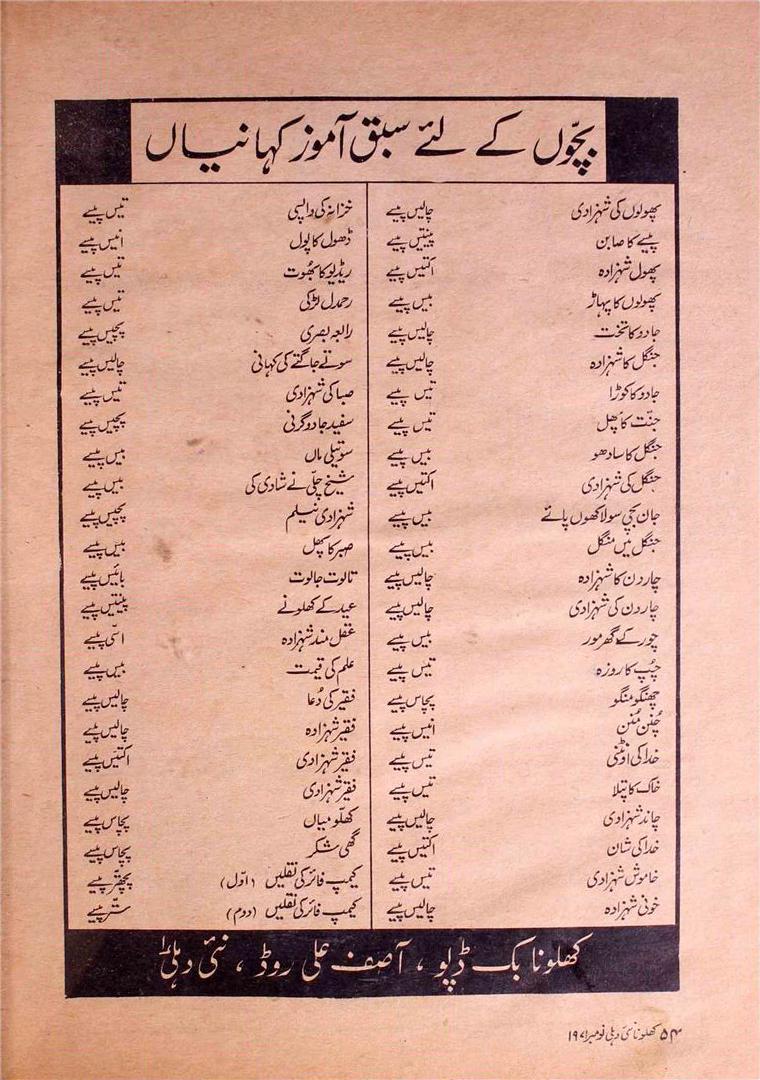 بچّوں کے لئے سبق آموز کہانیاں
پھولوں کی شہزادی چالیس پیسے
پیسے کا صابن پینتیس پیسے
پھول شہزادہ اکتیس پیسے
پھولوں کا پہاڑ بیس پیسے
جادو کا تخت چالیس پیسے
جنگل کا شہزادہ چالیس پیسے
جادو کا کوڑا تیس پیسے
جنّت کا پھل تیس پیسے
جنگل کا سادھو بیس پیسے
جنگل کی شہزادی اکتیس پیسے
جان بچی سو لاکھوں پائے بیس پیسے
جنگل میں منگل بیس پیسے
چار دن کا شہزادہ چالیس پیسے
چار دن کی شہزادی چالیس پیسے
چور کے گھر مور بیس پیسے
چُپ کا روزہ تیس پیسے
چھنگو منگو پچاس پیسے
چُنن مُنن انیس پیسے
خدا کی اونٹنی تیس پیسے
خاک کا پتلا تیس پیسے
چاند شہزادی چالیس پیسے
خدا کی شان اکتیس پیسے
خاموش شہزادی تیس پیسے
خونی شہزادہ چالیس پیسے
خزانہ کی واپسی تیس پیسے
ڈھول کا پول انیس پیسے
ریڈیو کا بھُوت تیس پیسے
رحمدل لڑکی تیس پیسے
رابعہ بصری پچیس پیسے
سوتے جاگتے کی کہانی چالیس پیسے
صبا کی شہزادی تیس پیسے
سفید جادوگرنی پچیس پیسے
سوتیلی ماں بیس پیسے
شیخ چلّی نے شادی کی بیس پیسے
شہزادی نیلم پچیس پیسے
صبر کا پھل بیس پیسے
تالوت جالوت بائیس پیسے
عید کے کھلونے پینتیس پیسے
عقل مند شہزادہ اسّی پیسے
علم کی قیمت بیس پیسے
فقیر کی دُعا چالیس پیسے
فقیر شہزادہ چالیس پیسے
فقیر شہزادی اکتیس پیسے
فقیر شہزادی چالیس پیسے
کھلّو میاں پچاس پیسے
گھی شکر پچاس پیسے
کیمپ فائر کی نقلیں (اوّل) پچھتّر پیسے
کیمپ فائر کی نقلیں (دوم) ستّر پیسے
کھلونا بک ڈپو ، آصف علی روڈ ، نئی دہلی ۱
۵۴ کھلونا نئی دہلی نومبر ۱۹۷۱